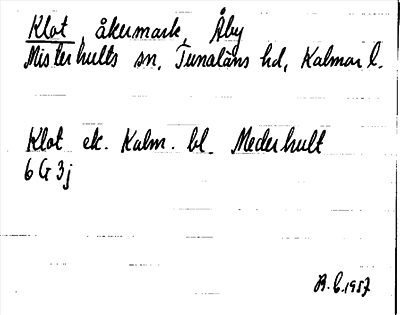 Klot, åkermark, Åby
Misterhults sn, Tunaläns hd, Kalmar l.
Klot ek. Kalm. bl. Mederhult
6 G 3j
A.C. 1957